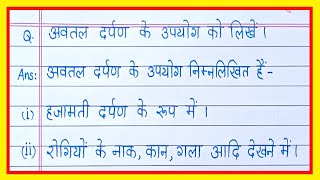 Q. अवतल दर्पण के उपयोग को लिखें।
Ans: अवतल दर्पण के उपयोग निम्नलिखित हैं-
(i) हजामती दर्पण के रूप में।
(ii) रोगियों के नाक, कान, गला आदि देखने में।